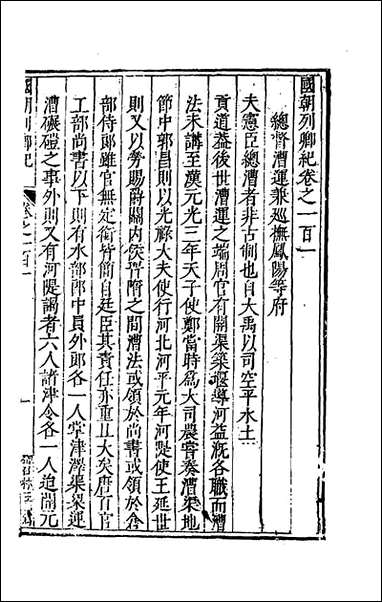 國朝列卿紀卷之一百一
總督漕運兼巡撫鳳陽等府
夫憲臣總漕者非古制也自大禹以司空平水土
貢道益後世漕運之端周官有開渠築堰導河益溉各職而漕
法未講至漢元光三年天子使鄭當時為大司農嘗奏漕渠地
節中郭昌則以光祿大夫使行河北河平元年河隄使王延世
則又以勞賜爵關內侯晉隋之間漕法或領於尚書或領於倉
部侍郎雖官無定銜皆簡自廷臣其責任亦重且大矣唐百官
工部尚書以下則有水部郎中員外郎各一人掌津澤渠梁運
漕碾磑之事外則又有河隄謁者六人諸津令各一人迨開元
國朝列卿紀
卷之一百一
一